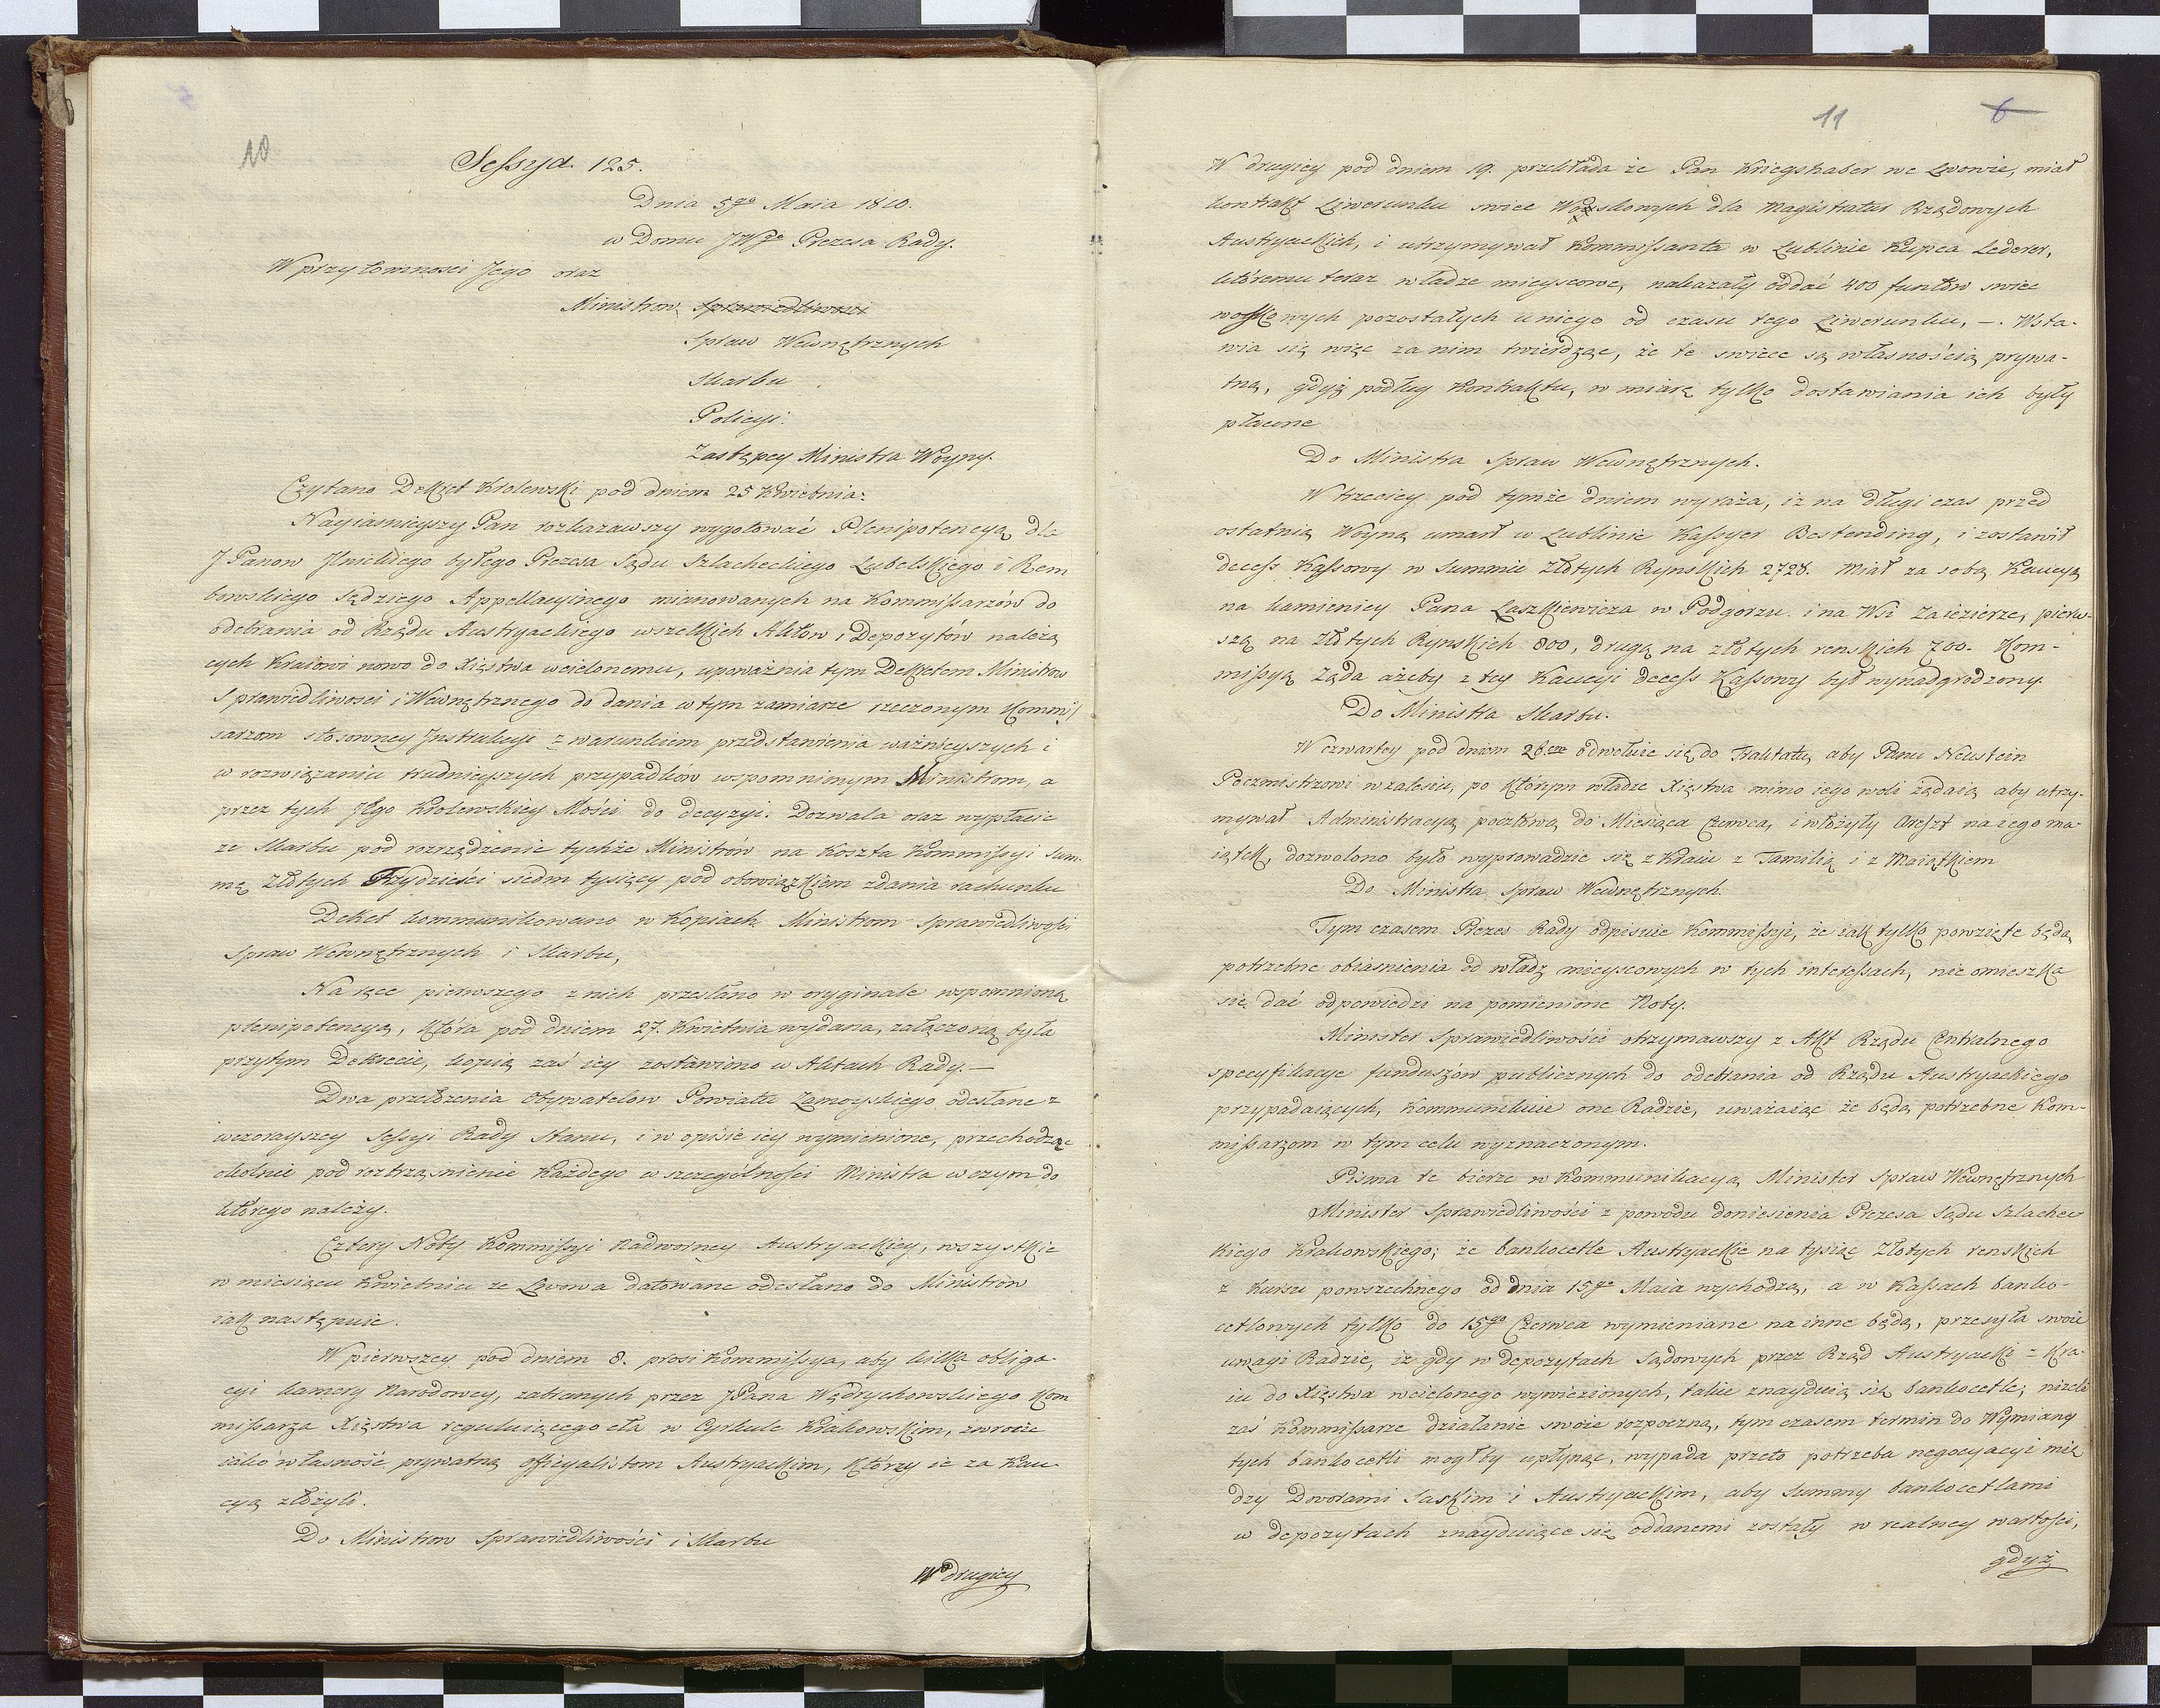 10
Sessya 125.
Dnia 5go Maia 1810.
w Domu JWgo Prezesa Rady.
W przytomnosci Jego oraz
Ministrow Sprawiedliwosci
Spraw Wewnętrznych
Skarbu
Policyi.
Zastępcy Ministra Woyny.
Czytano Dekret Krolewski pod dniem 25 Kwietnia:
Nayiasnieyszy Pan rozkazawszy wygotować Plenipotencyą dla
J Panow Ilnickiego byłego Prezesa Sądu Szlacheckiego Lubelskiego i Rem
bowskiego Sędziego Appellacyinego mianowanych na Kommissarzów do
odebrania od Rządu Austryackiego wszelkich Aktow i Depozytów należą
cych Kraiowi nowo do Xięstwa wcielonemu, upoważnia tym Dekretem Ministrow
Sprawiedliwosci i Wewnętrznego do dania w tym zamiarze rzeczonym Kommis
sarzom stosowney Instrukcyi z warunkiem przedstawienia ważnieyszych i
w rozwiązaniu trudnieyszych przypadków wspomnionym Ministrom, a
przez tych Jego Krolewskiey Mości do decyzyi. Dozwala oraz wypłacić
ze Skarbu pod rozrządzenie tychże Ministrów na Koszta Kommissyi Sum-
mę Złotych Trzydzieści siedm tysięcy pod obowiązkiem zdania rachunku
Dekret kommunikowano w Kopiach Ministrom Sprawiedliwości
Spraw Wewnętrznych i Skarbu,
Na ręce pierwszego z nich przesłano w oryginale wspomnioną
plenipotencyą, która pod dniem 27. Kwietnia wydana, załączoną była
przytym Dekrecie, kopią zaś iey zostawiono w Aktach Rady.—
Dwa przełożenia Obywatelow Powiatu Zamoyskiego odesłane z
wczorayszey Sessyi Rady Stanu, i w opisie iey wymienione, przechodzą
okolnie pod roztrząsnienie Każdego w szczególności Ministra w czym do
którego należy.
Cztery Noty Kommissyi Nadworney Austryackiey, wszystkie
w miesiącu Kwietniu ze Lwowa datowane odesłano do Ministrow
iak następuie.
W pierwszey pod dniem 8. prosi Kommissya, aby kilka obliga-
cyi kamery Narodowey, zabranych przez JPana Wędrychowskiego Kom
missarza Xięstwa reguluiącego cła w Cyrkule Krakowskim, zwrócić
iako własność prywatną officyalistom Austryackim, którzy ie za Kau-
cyą złożyli.
Do Ministrow Sprawiedliwości i Skarbu
W drugiey
11
6
W drugiey pod dniem 19. przekłada że Pan Kriegshaber we Lwowie, miał
kontrakt Liwerunku swiec Woskowych dla Magistratur Rządowych
Austryackich, i utrzymywał Kommissanta w Lublinie Kupca Lederer,
któremu teraz władze mieyscowe, nakazały oddać 400 funtów swiec
woskowych pozostałych u niego od czasu tego Liwerunku, —. Wsta-
wia się więc za nim twierdząc, że te swiece są własnością prywa-
tną, gdyż podług Kontraktu, w miarę tylko dostawiania ich były
płacone
Do Ministra Spraw Wewnętrznych.
W trzeciey pod tymże dniem wyraża, iż na długi czas przed
ostatnią Woyną umarł w Lublinie Kassyer Bestending, i zostawił
decess Kassowy w Summie Złotych Rynskich 2728. Miał za sobą Kaucyą
na kamienicy Pana Laszkiewicza w Podgorzu i na Wsi Zaieżierze, pierw-
szą na Złotych Rynskich 800, drugą na złotych renskich 700. Kom-
missya Żąda ażeby z tey Kaucyi decess Kassowy był wynadgrodzony.
Do Ministra Skarbu.
W czwartey pod dniem 26. odwołuie się do Traktatu, aby Panu Neustein
Poczmistrzowi w zalesiu, po którym władze Xięstwa mimo iego woli żądaią aby utrzy-
mywał Administracyą pocztową do Miesiąca Czerwca, i włożyły areszt na iego ma-
iątek, dozwolono było wyprowadzić się z Kraiu z Familią i z Maiątkiem
Do Ministra Spraw Wewnętrznych.
Tym czasem Prezes Rady odpisuie Kommissyi, że iak tylko powzięte będą
potrzebne obiasnienia od władz mieyscowych w tych interessach, nie omieszka
się dać odpowiedzi na pomienione Noty.
Minister Sprawiedliwości otrzymawszy z Akt Rządu Centralnego
specyfikacye funduszów publicznych do odebrania od Rządu Austryackiego
przypadaiących, Kommunikuie one Radzie, uważaiąc że będą potrzebne Kom-
missarzom w tym celu wyznaczonym.
Pisma te bierze w Kommunikacyą Minister Spraw Wewnętrznych
Minister Sprawiedliwości z powodu doniesienia Prezesa Sądu Szlachec
kiego Krakowskiego; że bankocetle Austryackie na tysiąc Złotych renskich
z kursu powszechnego od dnia 15go Maia wychodzą, a w Kassach banko-
cetlowych tylko do 15go Czerwca wymieniane na inne będą, przesyła swoie
uwagi Radzie, iż gdy w depozytach Sądowych przez Rząd Austryacki z Kra-
iu do Xięstwa wcielonego wywiezionych, takie znayduią się bankocetle; niżeli
zaś Kommissarze działanie swoie rozpoczną, tym czasem termin do Wymiany
tych bankocetli mogłby upłynąć, wypada przeto potrzeba negocyacyi mię
dzy Dworami Saskim i Austryackim, aby Summy bankocetlami
w depozytach znayduiące się oddanemi zostały w realney wartości,
gdyż